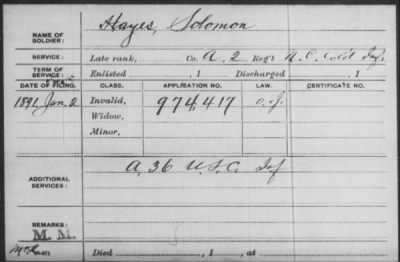 Hayes, Solomon
NAME OF SOLDIER:
SERVICE: Late rank, Co. A, 2 Reg't N.C. Cold Inf.
TERM OF SERVICE: Enlisted , 1 Discharged , 1
DATE OF FILING. CLASS. APPLICATION NO. LAW. CERTIFICATE NO.
1891, Jan. 2 Invalid, 974,417
Widow,
Minor,
A, 36 U.S.C. Inf
ADDITIONAL SERVICES:
REMARKS:
M. M.
Died , 1 , at